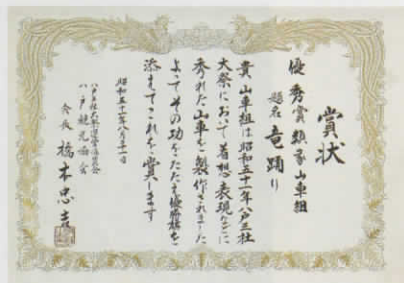 賞状
優秀賞 類家山車組
題名 竜踊り
貴山車組は昭和五十一年八戸三社
大祭において着想表現ともに
秀れた山車を製作されました
よってその功をたたえ優勝楯を
添えてこれを賞します
昭和五十一年八月三十一日
八戸三社大祭運営委員会
八戸観光協会
会長 橋本忠吉